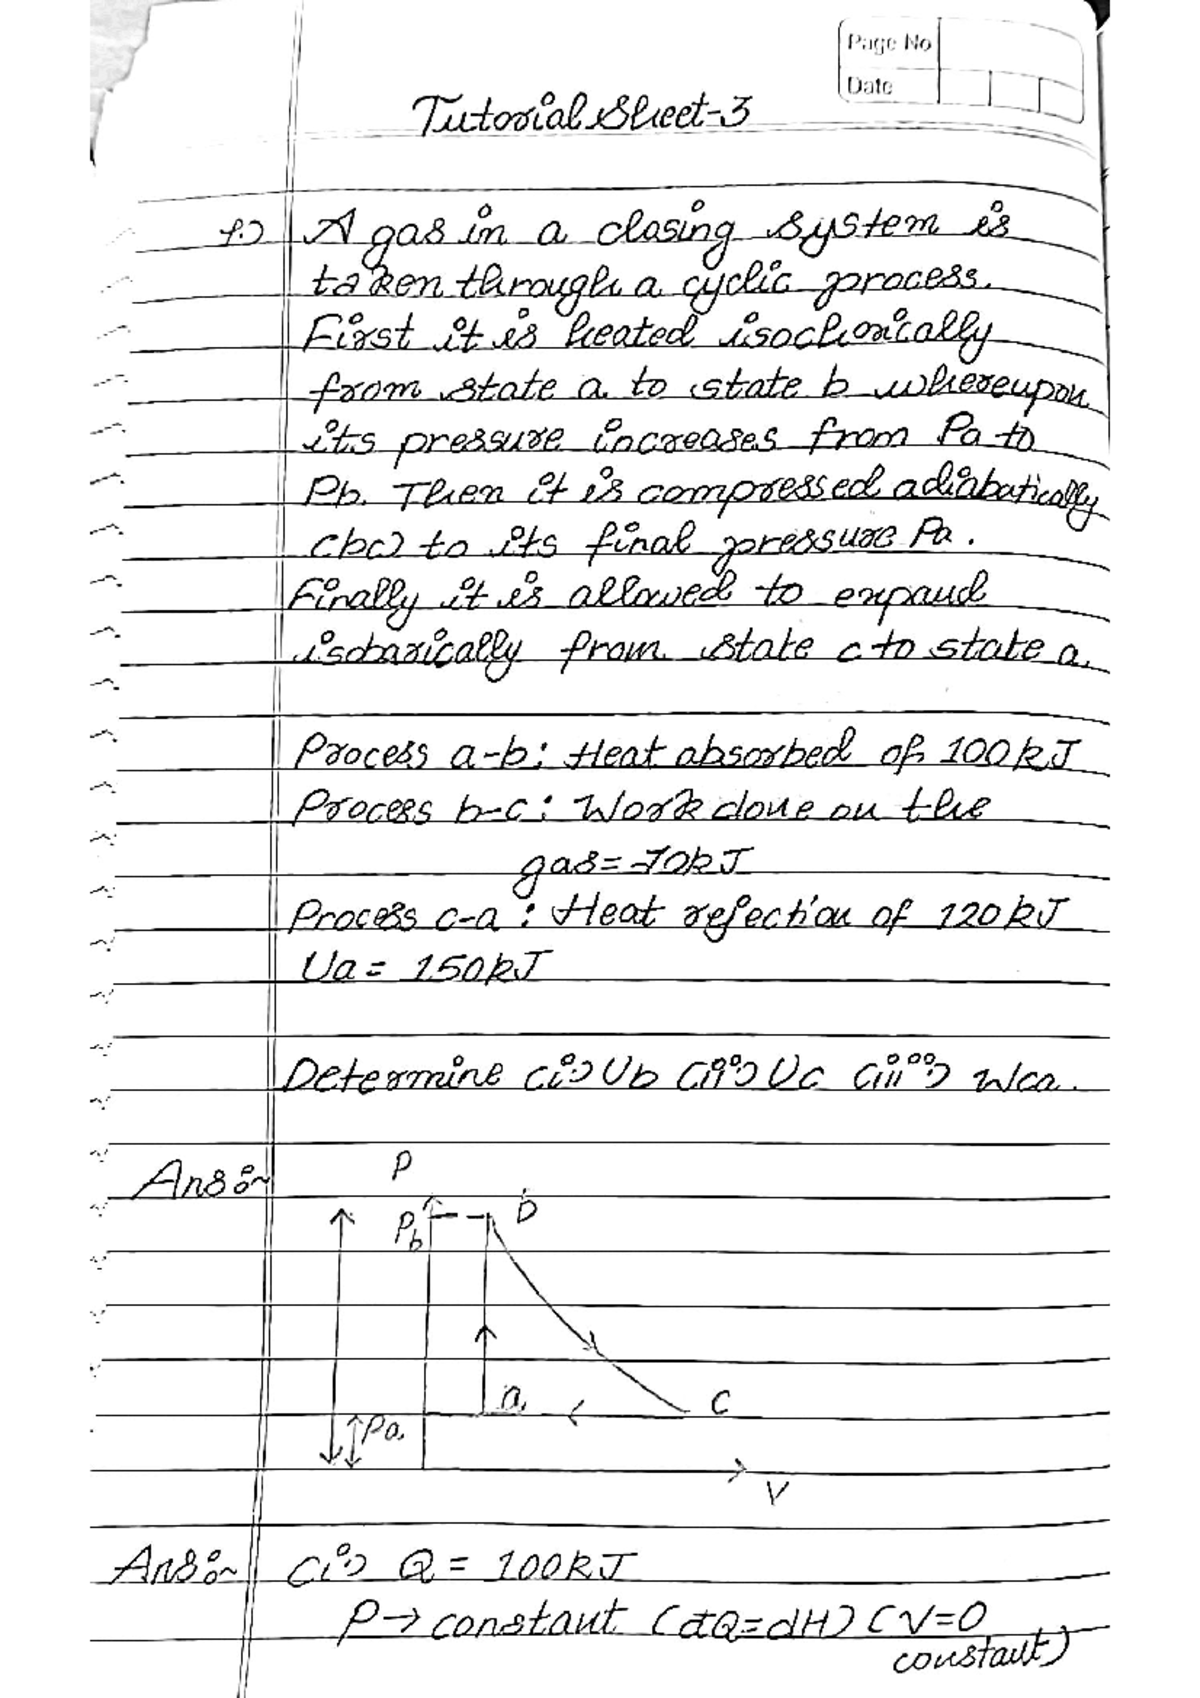 Page No
Date
Tutorial Sheet-3
1.) A gas in a closing system is
taken through a cyclic process.
First it is heated isochorically
from state a to state b whereupon
its pressure increases from Pa to
Pb. Then it is compressed adiabatically
(bc) to its final pressure Pa.
Finally it is allowed to expand
isobarically from state c to state a.
Process a-b: Heat absorbed of 100kJ
Process b-c: Work done on the
gas= -70kJ
Process c-a: Heat rejection of 120kJ
Ua= 150kJ
Determine (i) Ub (ii) Uc (iii) Wca.
Ans:~
P
Pb
b
a
c
Pa
V
Ans:~ (i) Q = 100kJ
P→ constant (dQ=dH) (V=0
constant)